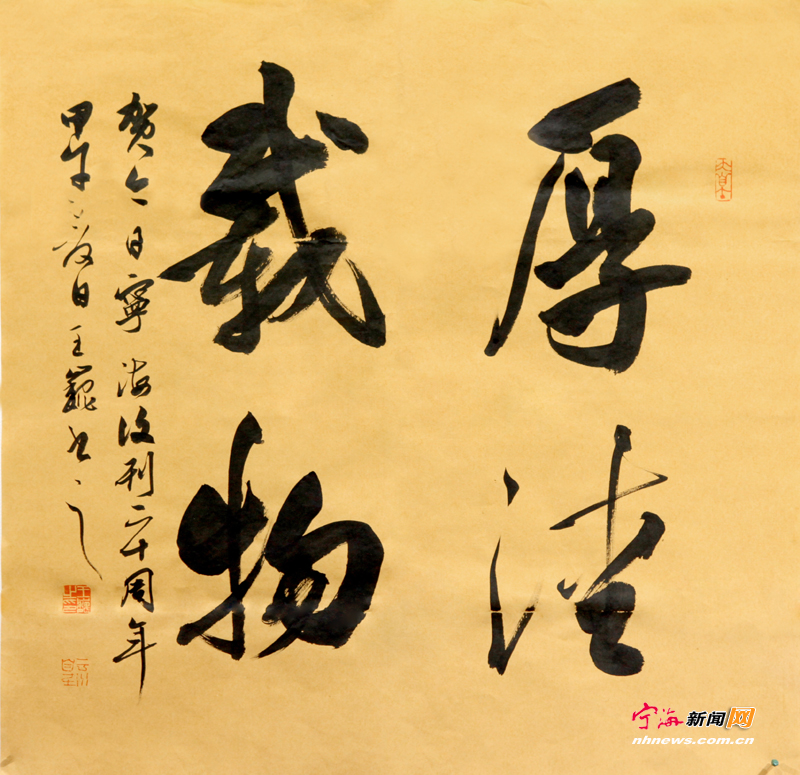 厚德
载物
贺今日宁海改刊二十周年
甲午夏日王巍书之
宁海新闻网
nhnews.com.cn